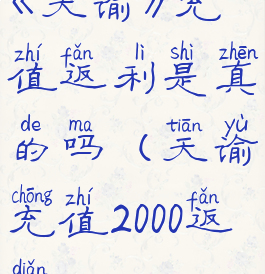 《天谕》充
zhí fǎn lì shì zhēn
值返利是真
de ma tiān yù
的吗（天谕
chōng zhí fǎn
充值2000返
diǎn